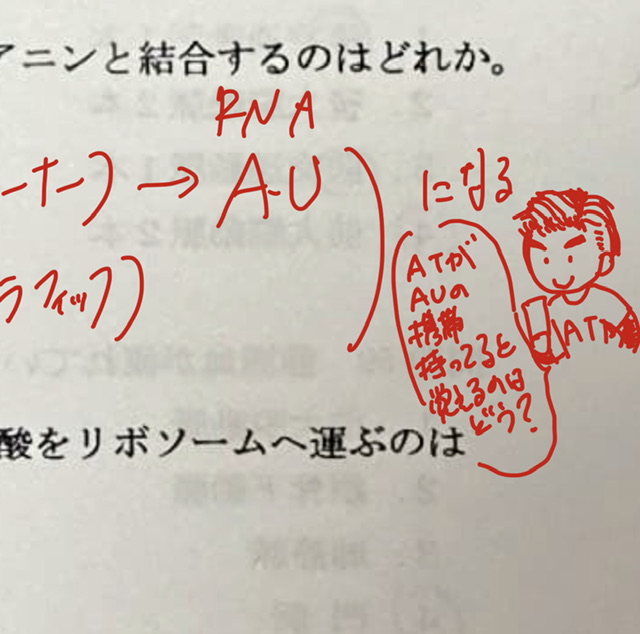 アニンと結合するのはどれか。
RNA
ーナー) → A-U になる
ラフィック)
ATが
AUの
携帯
持ってると
覚えるのは
どう?
ATM
酸をリボソームへ運ぶのは